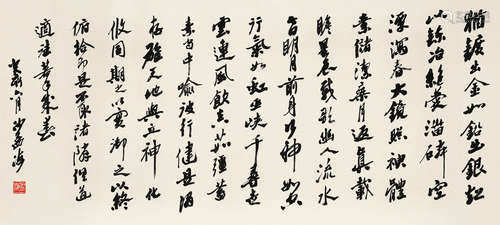 猶鑛出金如鉛出銀超
心鍊冶絕愛淄磷空
潭瀉春古鏡照神體
素儲潔乘月返真載
瞻星辰載歌幽人流水
今日明月前身行神如空
行氣如虹巫峽千尋走
雲連風飲真茹彊蓄
素守中喻彼行健是謂
存雄天地與立神化
攸同期之以實御之以終
俯拾即是不取諸鄰俱道
適往著手成春
月沙孟海